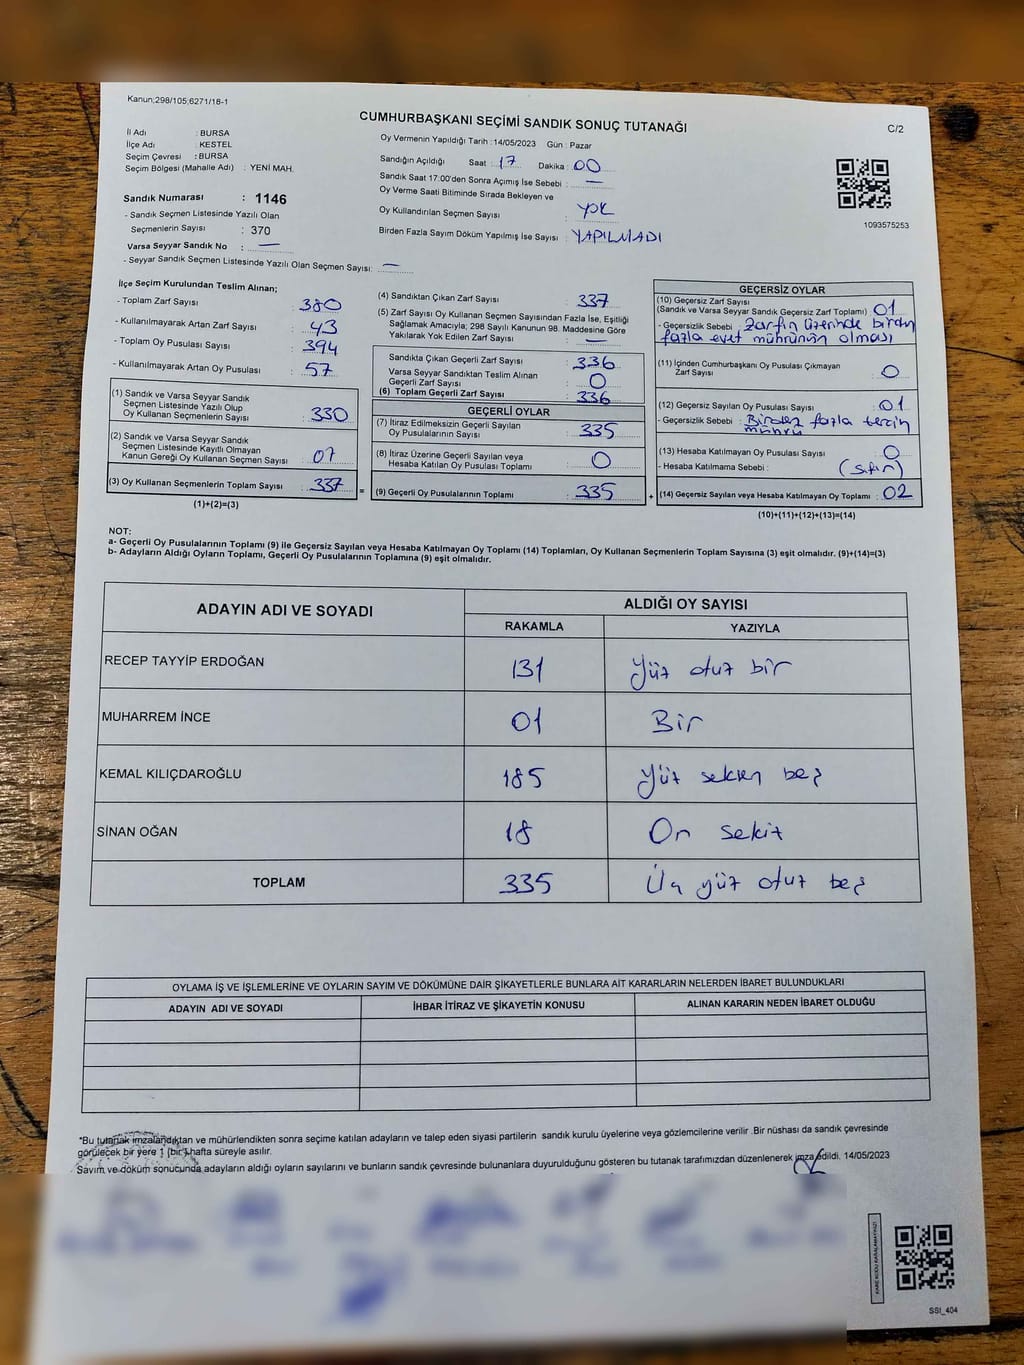 Kanun;298/105;6271/18-1
CUMHURBAŞKANI SEÇİMİ SANDIK SONUÇ TUTANAĞI
C/2
İl Adı : BURSA
İlçe Adı : KESTEL
Seçim Çevresi : BURSA
Seçim Bölgesi (Mahalle Adı) : YENİ MAH.
Sandık Numarası : 1146
- Sandık Seçmen Listesinde Yazılı Olan
Seçmenlerin Sayısı : 370
Varsa Seyyar Sandık No : —
- Seyyar Sandık Seçmen Listesinde Yazılı Olan Seçmen Sayısı: —
Oy Vermenin Yapıldığı Tarih :14/05/2023 Gün : Pazar
Sandığın Açıldığı Saat : 17 Dakika : 00
Sandık Saat 17:00'den Sonra Açımış İse Sebebi : —
Oy Verme Saati Bitiminde Sırada Bekleyen ve
Oy Kullandırılan Seçmen Sayısı : YOK
Birden Fazla Sayım Döküm Yapılmış İse Sayısı : YAPILMADI
1093575253
İlçe Seçim Kurulundan Teslim Alınan;
- Toplam Zarf Sayısı : 380
- Kullanılmayarak Artan Zarf Sayısı : 43
- Toplam Oy Pusulası Sayısı : 394
- Kullanılmayarak Artan Oy Pusulası : 57
(1) Sandık ve Varsa Seyyar Sandık
Seçmen Listesinde Yazılı Olup
Oy Kullanan Seçmenlerin Sayısı : 330
(2) Sandık ve Varsa Seyyar Sandık
Seçmen Listesinde Kayıtlı Olmayan
Kanun Gereği Oy Kullanan Seçmen Sayısı : 07
(3) Oy Kullanan Seçmenlerin Toplam Sayısı : 337 =
(1)+(2)=(3)
(4) Sandıktan Çıkan Zarf Sayısı : 337
(5) Zarf Sayısı Oy Kullanan Seçmen Sayısından Fazla İse, Eşitliği
Sağlamak Amacıyla; 298 Sayılı Kanunun 98. Maddesine Göre
Yakılarak Yok Edilen Zarf Sayısı : —
Sandıkta Çıkan Geçerli Zarf Sayısı : 336
Varsa Seyyar Sandıktan Teslim Alınan
Geçerli Zarf Sayısı : 0
(6) Toplam Geçerli Zarf Sayısı : 336
GEÇERLİ OYLAR
(7) İtiraz Edilmeksizin Geçerli Sayılan
Oy Pusulalarının Sayısı : 335
(8) İtiraz Üzerine Geçerli Sayılan veya
Hesaba Katılan Oy Pusulası Toplamı : 0
(9) Geçerli Oy Pusulalarının Toplamı : 335 +
GEÇERSİZ OYLAR
(10) Geçersiz Zarf Sayısı
(Sandık ve Varsa Seyyar Sandık Geçersiz Zarf Toplamı) : 01
- Geçersizlik Sebebi : Zarfın üzerinde birden
fazla evet mührünün olması
(11) İçinden Cumhurbaşkanı Oy Pusulası Çıkmayan
Zarf Sayısı : 0
(12) Geçersiz Sayılan Oy Pusulası Sayısı : 01
- Geçersizlik Sebebi : Birden fazla tercih
mührü
(13) Hesaba Katılmayan Oy Pusulası Sayısı : 0
- Hesaba Katılmama Sebebi : (sıfır)
(14) Geçersiz Sayılan veya Hesaba Katılmayan Oy Toplamı : 02
(10)+(11)+(12)+(13)=(14)
NOT:
a- Geçerli Oy Pusulalarının Toplamı (9) ile Geçersiz Sayılan veya Hesaba Katılmayan Oy Toplamı (14) Toplamları, Oy Kullanan Seçmenlerin Toplam Sayısına (3) eşit olmalıdır. (9)+(14)=(3)
b- Adayların Aldığı Oyların Toplamı, Geçerli Oy Pusulalarının Toplamına (9) eşit olmalıdır.
ADAYIN ADI VE SOYADI ALDIĞI OY SAYISI
RAKAMLA YAZIYLA
RECEP TAYYİP ERDOĞAN 131 Yüz otuz bir
MUHARREM İNCE 01 Bir
KEMAL KILIÇDAROĞLU 185 Yüz seksen beş
SİNAN OĞAN 18 On sekiz
TOPLAM 335 Üç yüz otuz beş
OYLAMA İŞ VE İŞLEMLERİNE VE OYLARIN SAYIM VE DÖKÜMÜNE DAİR ŞİKAYETLERLE BUNLARA AİT KARARLARIN NELERDEN İBARET BULUNDUKLARI
ADAYIN ADI VE SOYADI İHBAR İTİRAZ VE ŞİKAYETİN KONUSU ALINAN KARARIN NEDEN İBARET OLDUĞU
*Bu tutanak imzalandıktan ve mühürlendikten sonra seçime katılan adayların ve talep eden siyasi partilerin sandık kurulu üyelerine veya gözlemcilerine verilir .Bir nüshası da sandık çevresinde
görülecek bir yere 1 (bir) hafta süreyle asılır.
Sayım ve döküm sonucunda adayların aldığı oyların sayılarını ve bunların sandık çevresinde bulunanlara duyurulduğunu gösteren bu tutanak tarafımızdan düzenlenerek imza edildi. 14/05/2023
KARE KODU KARALAMAYINIZ!
SSI_404